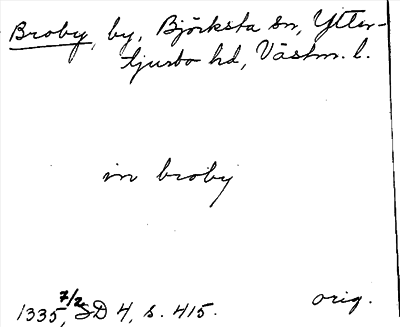 Broby, by, Björksta sn, Ytter-
tjurbo hd, Västm. l.
in broby
1335 7/2, SD 4, s. 415. orig.